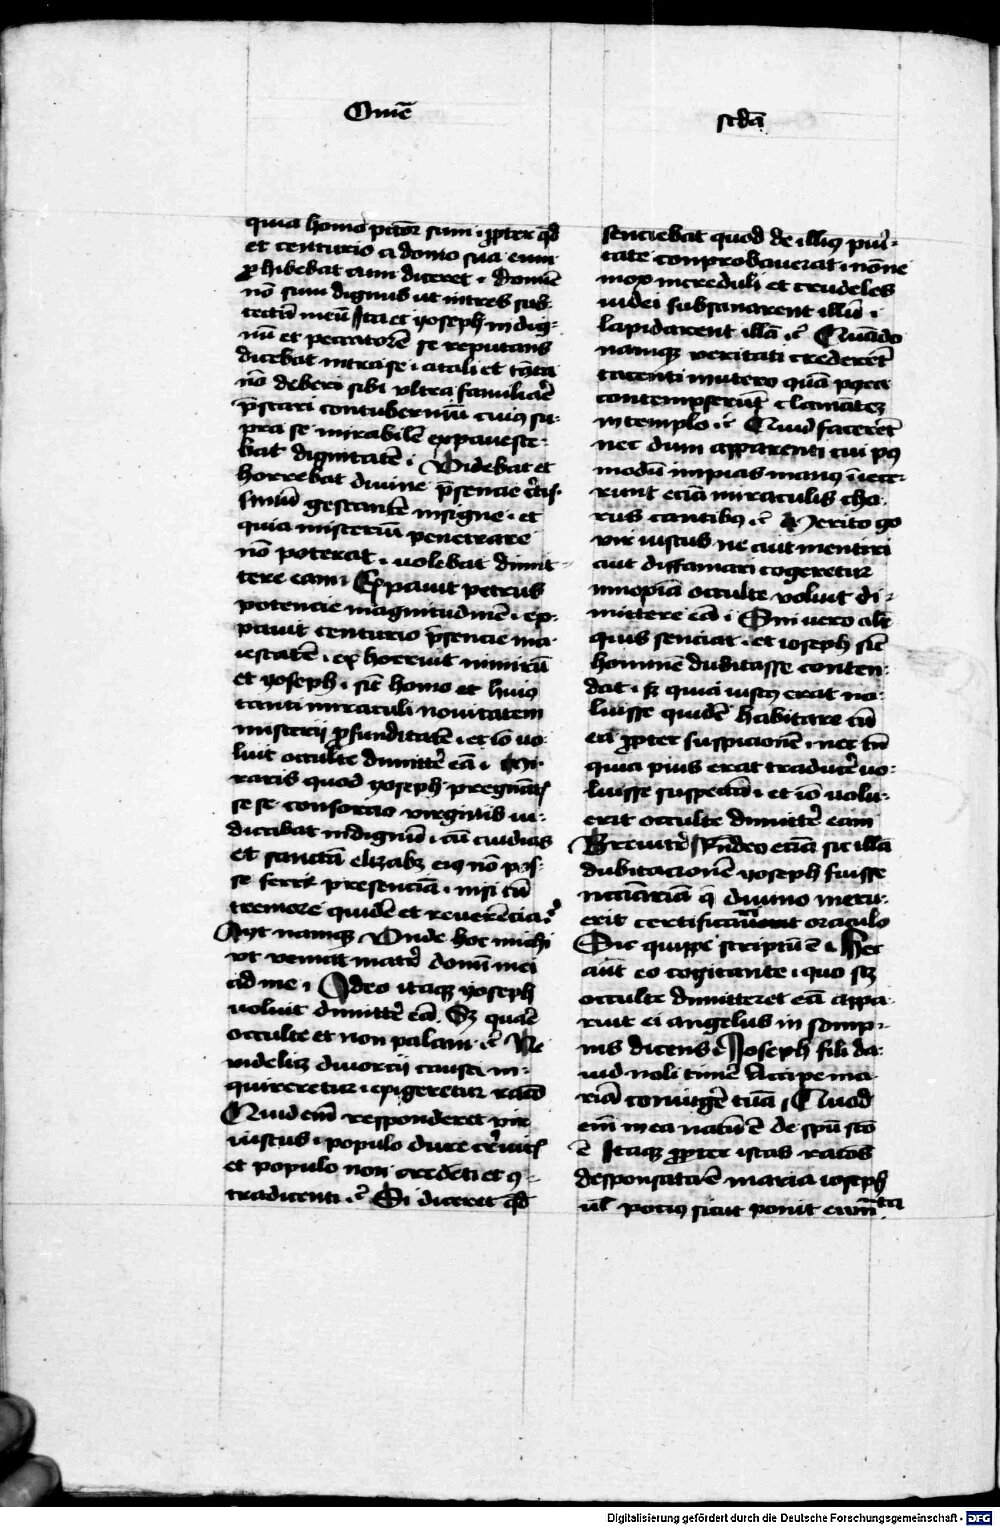 Omē
scdā
quia homo pctōr sum ꝓpter qd
et centurio a domo sua eum
ꝓhibebat cum diceret Domine
nō sum dignus ut intres sub
tectū meū Ita et yoseph indig-
nū et peccatorē se reputans
dicebat intra se a tali et tāta
nō debere sibi vltra familiarē
pͬstari contuberniū cuius su-
pra se mirabilē expauesce-
bat dignitatē Videbat et
horrebat diuine pͬsencie certis-
simū gestantē insigne et
quia misteriū penetrare
nō poterat uolebat dimit-
tere eam Expauit petrus
potencie magnitudinē ex-
pauit centurio pͬsencie ma-
iestatē exhorruit nimirū
et yoseph sic homo et huiꝰ
tanti miraculi nouitatem
misterij ꝓfunditatē et iō uo-
luit occulte dimitte eā Mi-
raris quod yoseph pregnātis
se se consorcio virginis iu-
dicabat indignū cū audias
et sanctā elizabꝫ eiꝰ nō pos-
se ferre presenciā nisi cū
tremore quidē et reuerēcia
Ayt namqꝫ Vnde hoc michi
vt veniat mater domi mei
ad me Ideo itaqꝫ yoseph
uoluit dimitte eā Sꝫ quare
occulte et non palam Ne
videlicꝫ diuorcij causa in-
quireretur exigeretur racō
Quid em responderet vir
iustus populo dure ceruicis
et populo non credēti et ꝯ-
tradicenti Si diceret qd
senciebat quod de illius puri-
tate comprobauerat nōne
mox increduli et crudeles
iudei subsanarent illū
lapidarent illā Quādo
namqꝫ veritati crederēt
tacenti in utero quā postea
contempserūt clamātem
in templo Quid facerēt
nec dum apparenti cui pꝰ
modū impias manꝰ iniece-
runt eciā miraculis cho-
ruscantibꝰ Merito gͦ
vir iustus ne aut mentiri
aut diffamari cogeretur
innoxiā occulte voluit di-
mittere eā Sin uero alit
quis senciat et ioseph sic
hominē dubitasse conten-
dat sꝫ quia iustꝰ erat no-
luisse quidē habitare cū
eā ꝓpter suspicionē nec tn
quia pius erat traducē uo-
luisse suspectā et iō uolu-
erit occulte dimitte eam
Breuiter Rn̄deo eciā sic illā
dubitacionē yoseph fuisse
necessariā q diuino meru-
erit certificari oraculo
Sic quippe scriptū ē Hec
aūt eo cogitante quo sꝫ
occulte dimitteret eā appa-
ruit ei angelus in somp-
nis dicens Joseph fili da-
uid noli timē Accipe ma-
riā coniugē tuā Quod
em in ea natū ē de spū sco
ē Itaqꝫ ꝓpter istas racōs
desponsata ē maria ioseph
ul pociꝰ sicut ponit ewāngͭᵃ
Digitalisierung gefördert durch die Deutsche Forschungsgemeinschaft - DFG